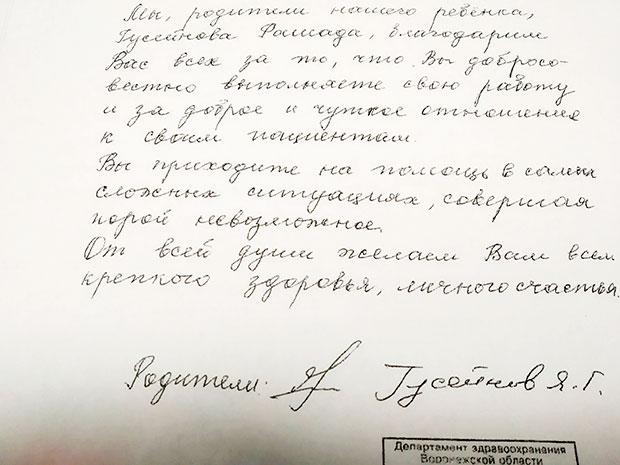 Мы, родители нашего ребёнка,
Гусейнова Фашада, благодарим
Вас всех за то, что Вы добросо-
вестно выполняете свою работу
и за доброе и чуткое отношения
к своим пациентам.
Вы приходите на помощь в самых
сложных ситуациях, совершая
порой невозможное.
От всей души желаем Вам всем
крепкого здоровья, личного счастья.
Родители: Гусейнов Я. Г.
Департамент здравоохранения
Воронежской области